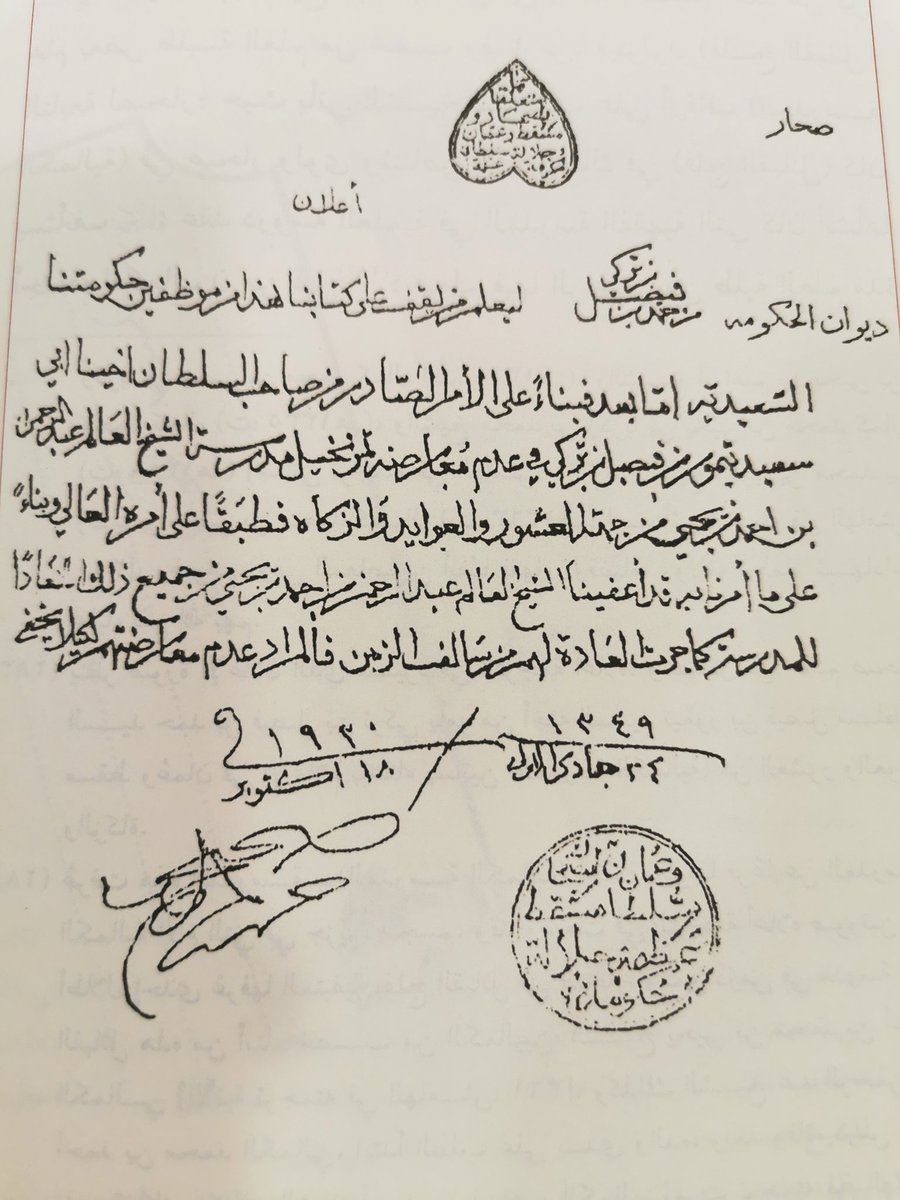 صحار
أعلان
ديوان الحكومه من حمد بن فيصل بن تركي ليعلم من يقف على كتابنا هذا من موظفين حكومتنا
السعيديه اما بعد فبناءً على الأمر الصّادر من صاحب السلطان اخينا ابي
سعيد تيمور بن فيصل بن تركي في عدم مُعارضة ثمر نخيل مدرسة الشيخ العالم عبد الرحمن
بن احمد بن يحيى من جهة العشور والعوايد والزكاه فطبقًا على أمره العالي وبناءً
على ما أمرنا به قد أعفينا الشيخ العالم عبد الرحمن بن احمد بن يحيى من جميع ذلك
للمدرسة كما جرت العادة لهم من سالف الزمن فالمراد عدم معارضتهم لكيلا يخفى
١٣٤٩ ١٩٣٠
٢٤ جمادى الاولى ١٨ اكتوبر